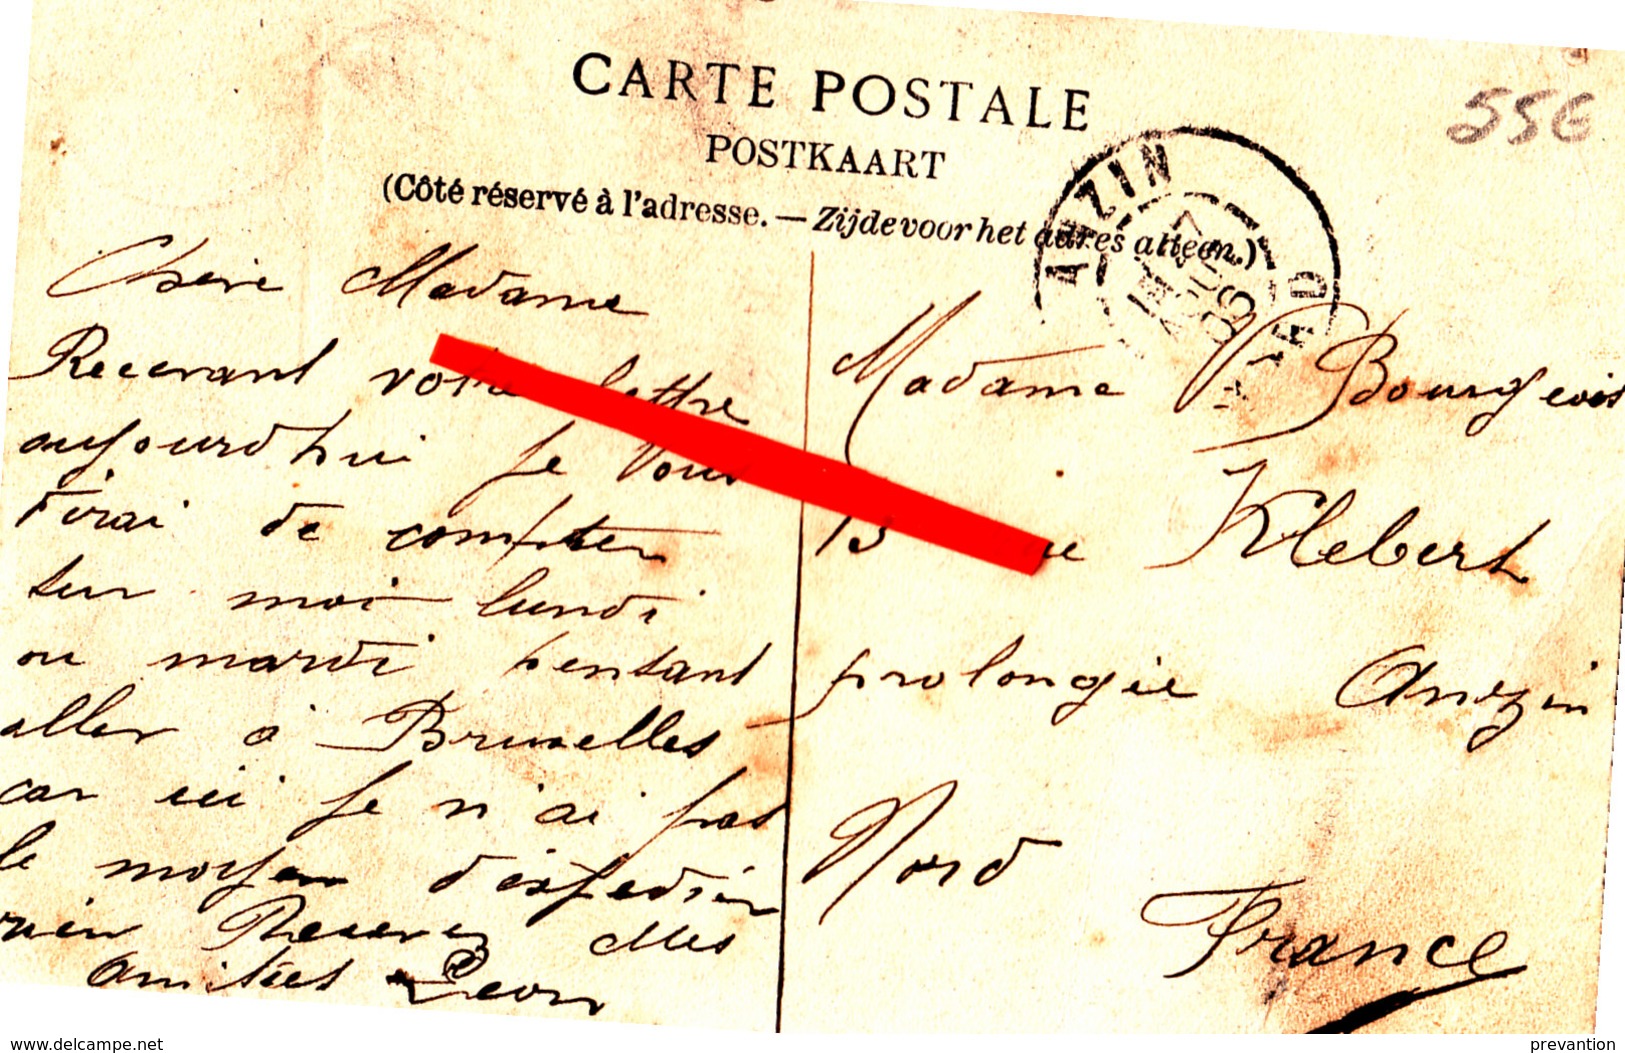 CARTE POSTALE
POSTKAART
(Côté réservé à l'adresse. — Zijde voor het adres alleen.)
55€
ANZIN
NORD
Chere Madame
Recevant votre lettre
aujourdhui je vous
dirai de compter
sur moi lundi
ou mardi pensant
aller à Bruxelles
car ici je n'ai pas
le moyen d'expedier
rien Recevez Mes
Amities Leon
Madame Vve Bourgeois
13 rue Klebert
prolongée Anzin
Nord
France
delcampe.net
prevantion